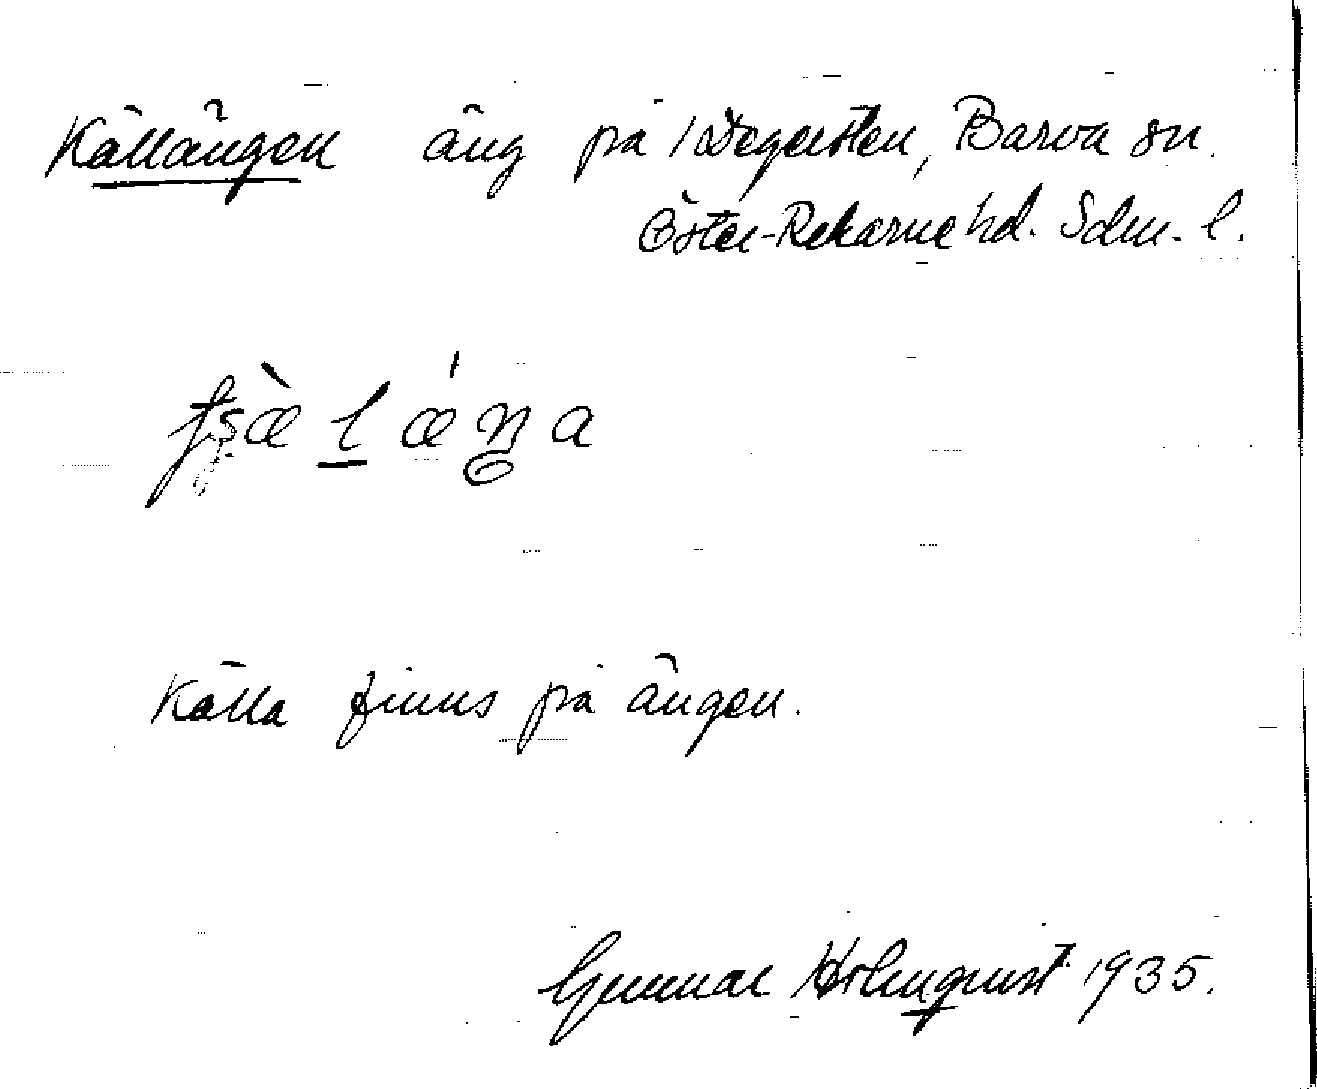 Källängen äng på Barva sn.
Öster-Rekarne hd. Södm. l.
Källa finns på ängen.
Gunnar Holmquist 1935.